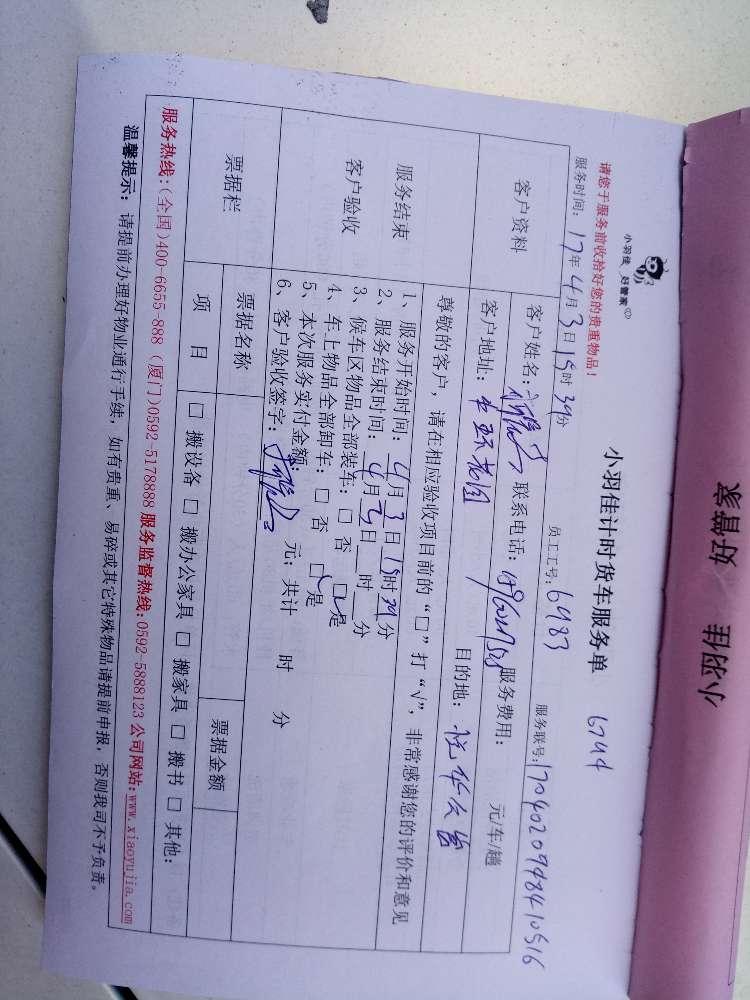 小羽佳 好管家
小羽佳 好管家
小羽佳计时货车服务单 6744
请您于服务前收拾好您的贵重物品！
员工工号：6983
服务联号：1704020948410516
服务时间：17年4月3日15时39分
客户资料
客户姓名： 联系电话： 服务费用： 元/车/趟
客户地址： 目的地：
尊敬的客户，请在相应验收项目前的“□”打“√”，非常感谢您的评价和意见
服务结束
客户验收
1、服务开始时间：4月3日15时39分
2、服务结束时间：4月3日 时 分
3、候车区物品全部装车：□ 否 □ 是
4、车上物品全部卸车：□ 否 □ 是
5、本次服务实付金额： 元；共计 时 分
6、客户验收签字：
票据栏
票据名称 票据金额
项 目 □ 搬设备 □ 搬办公家具 □ 搬家具 □ 搬书 □ 其他：
服务热线：(全国)400-6655-888 (厦门)0592-5178888 服务监督热线：0592-5888123 公司网站：www.xiaoyujia.com
温馨提示：请提前办理好物业通行手续，如有贵重、易碎或其它特殊物品请提前申报，否则我司不予负责。